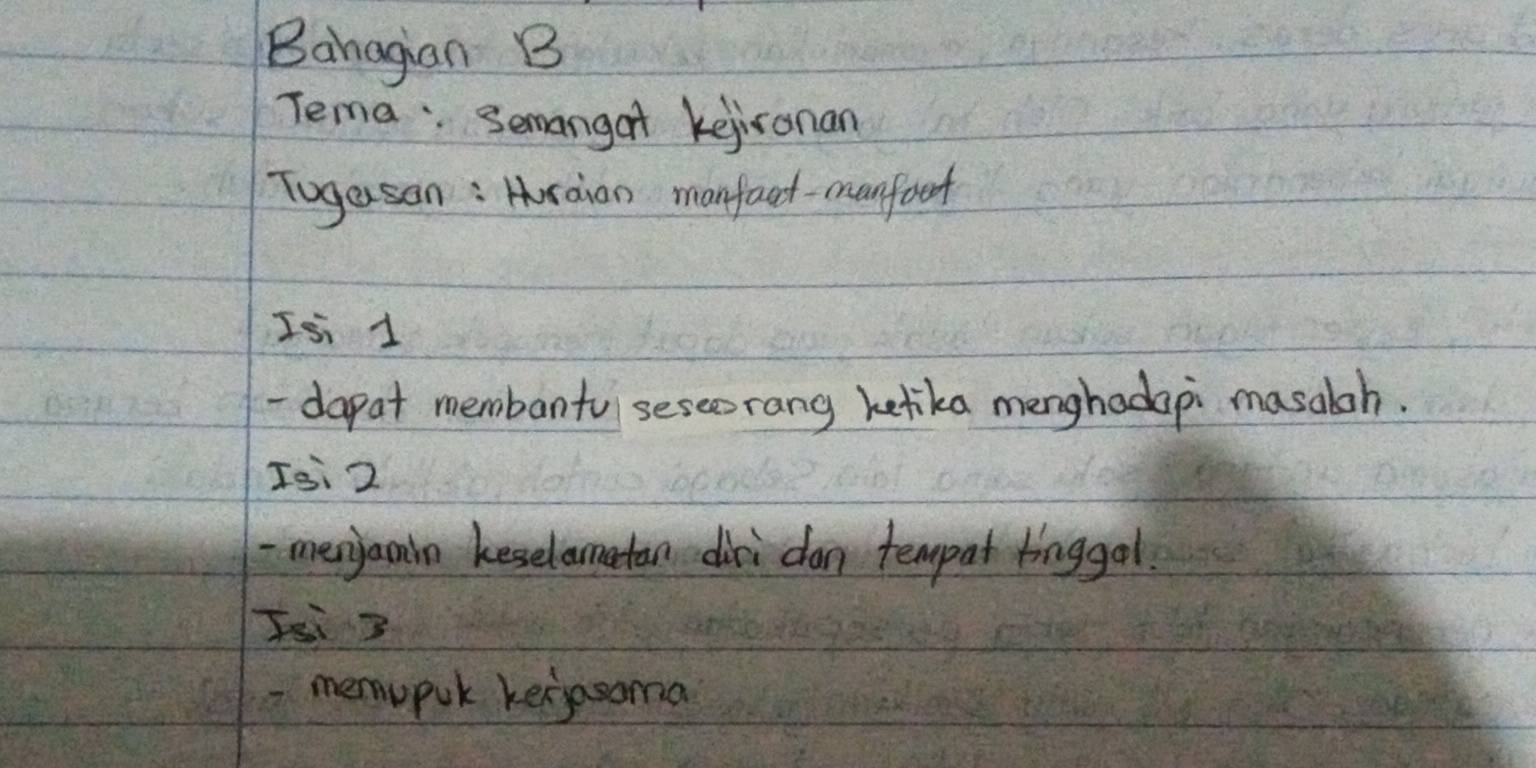 Bahagian B
Tema : Semangat kejiranan
Tugasan : Huraian manfaat-manfaat
Isi 1
- dapat membantu seseorang ketika menghadapi masalah.
Isi 2
- menjamin keselamatan diri dan tempat tinggal.
Isi 3
- memupuk kerjasama